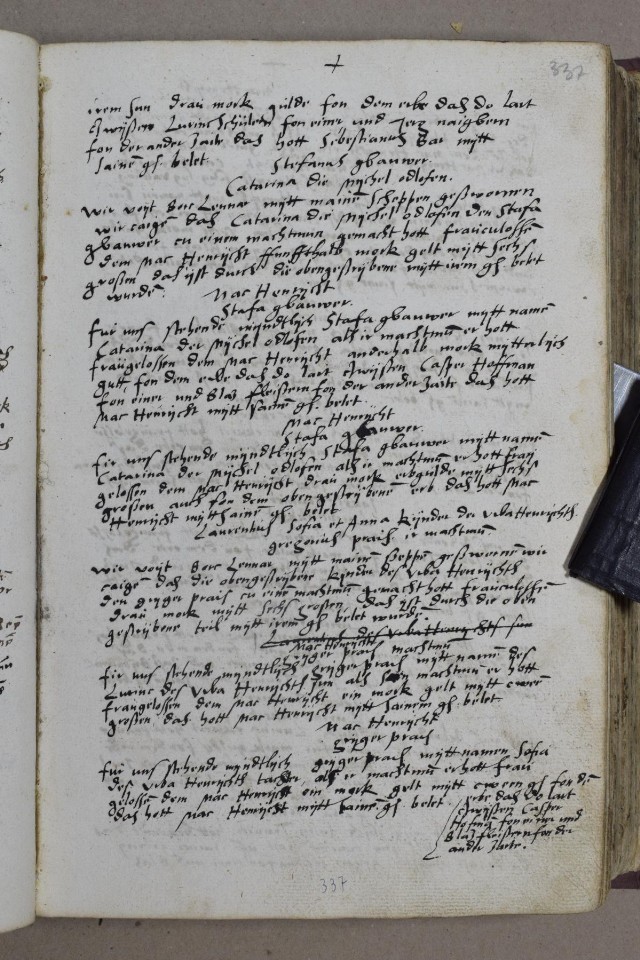 +
337
irem sun drau mork gülde fon dem erbe daß do lait
czwissen Lurinc Schülern fon einer und Jerg naigbern
fon der ander Zaite daß hott Sebestianus Bar mytt
sainē gl. belet
Stefanus gbauwer.
Catarina die mychel odlosen.
wir voyt Borc Lennar mytt mainen scheppen geswornen
wir caigē daß Catarina die mychel odlosen den Stafa
gbauwer cu einem machtmun gemacht hott fraiculossē
dem Mac Henrycht fünffthalb mork gelt mytt sechs
großen daß ist durch die obengeschrybene mytt irem gl. belet
wurdē.
Mac Henrycht
Stafa gbauwer.
für uns stehende myndtlych Stafa gbauwer mytt namē
Catarina der mychel odlosen als ir machtmū er hott
fraugelossen dem Mac Henrycht anderhalb mork mytterlych
gutt fon dem erbe daß do lait czwissen Casper Hoffman
fon einer und Blaß fleissern fon der ander Zaite daß hott
Mac Henrycht mytt sainē gl. belet
Mac Henrycht
Stafa gbauwer.
für uns stehende myndtlych Stafa gbauwer mytt namē
Catarina der mychel odlosen als ir machtmū er hott frau
gelossen dem Mac Henrycht drau mork erbgulde mytt sechs
großen auch fon dem obengeschrybenē erb daß hott Mac
Henrycht mytt sainē gl. belet
Laurentius Sofia et Anna kynder des Urba Henrychts.
gregorius prais ir machtmū
wir voyt Borc Lennar mytt mainen scheppē geswornē wir
caigē daß die obengeschrybene kynder des Urba Henrychts
den gryger prais cu eine machtmun gemacht hott fraiculossē
drau mork mytt sechs großen daß ist durch die oben
geschrybene teil mytt irem gl. belet wurdē.
Laurentius des Urba Henrychts sun
Mac Henrycht
Gryger prais machtmū
für uns stehende myndtlych gryger prais mytt namē des
Lurinc des Urba Henrychts sun als sein machtmun er hott
fraugelossen dem Mac Henrycht ein mork gelt mytt cween
großen daß hott Mac Henrycht mytt sainem gl. belet
Mac Henrycht
Gryger prais
für uns stehende myndtlych gryger prais mytt namen Sofia
des Urba Henrychts tachter als ir machtmū er hott frau
gelossē dem Mac Henrycht ein mork gelt mytt cween gl fon dē
daß hott Mac Henrycht mytt sainē gl. belet
erbe daß do lait
czwissen Casper
Hofmā fon einer und
Blaß fleissern fon der
ander Zaite.
337